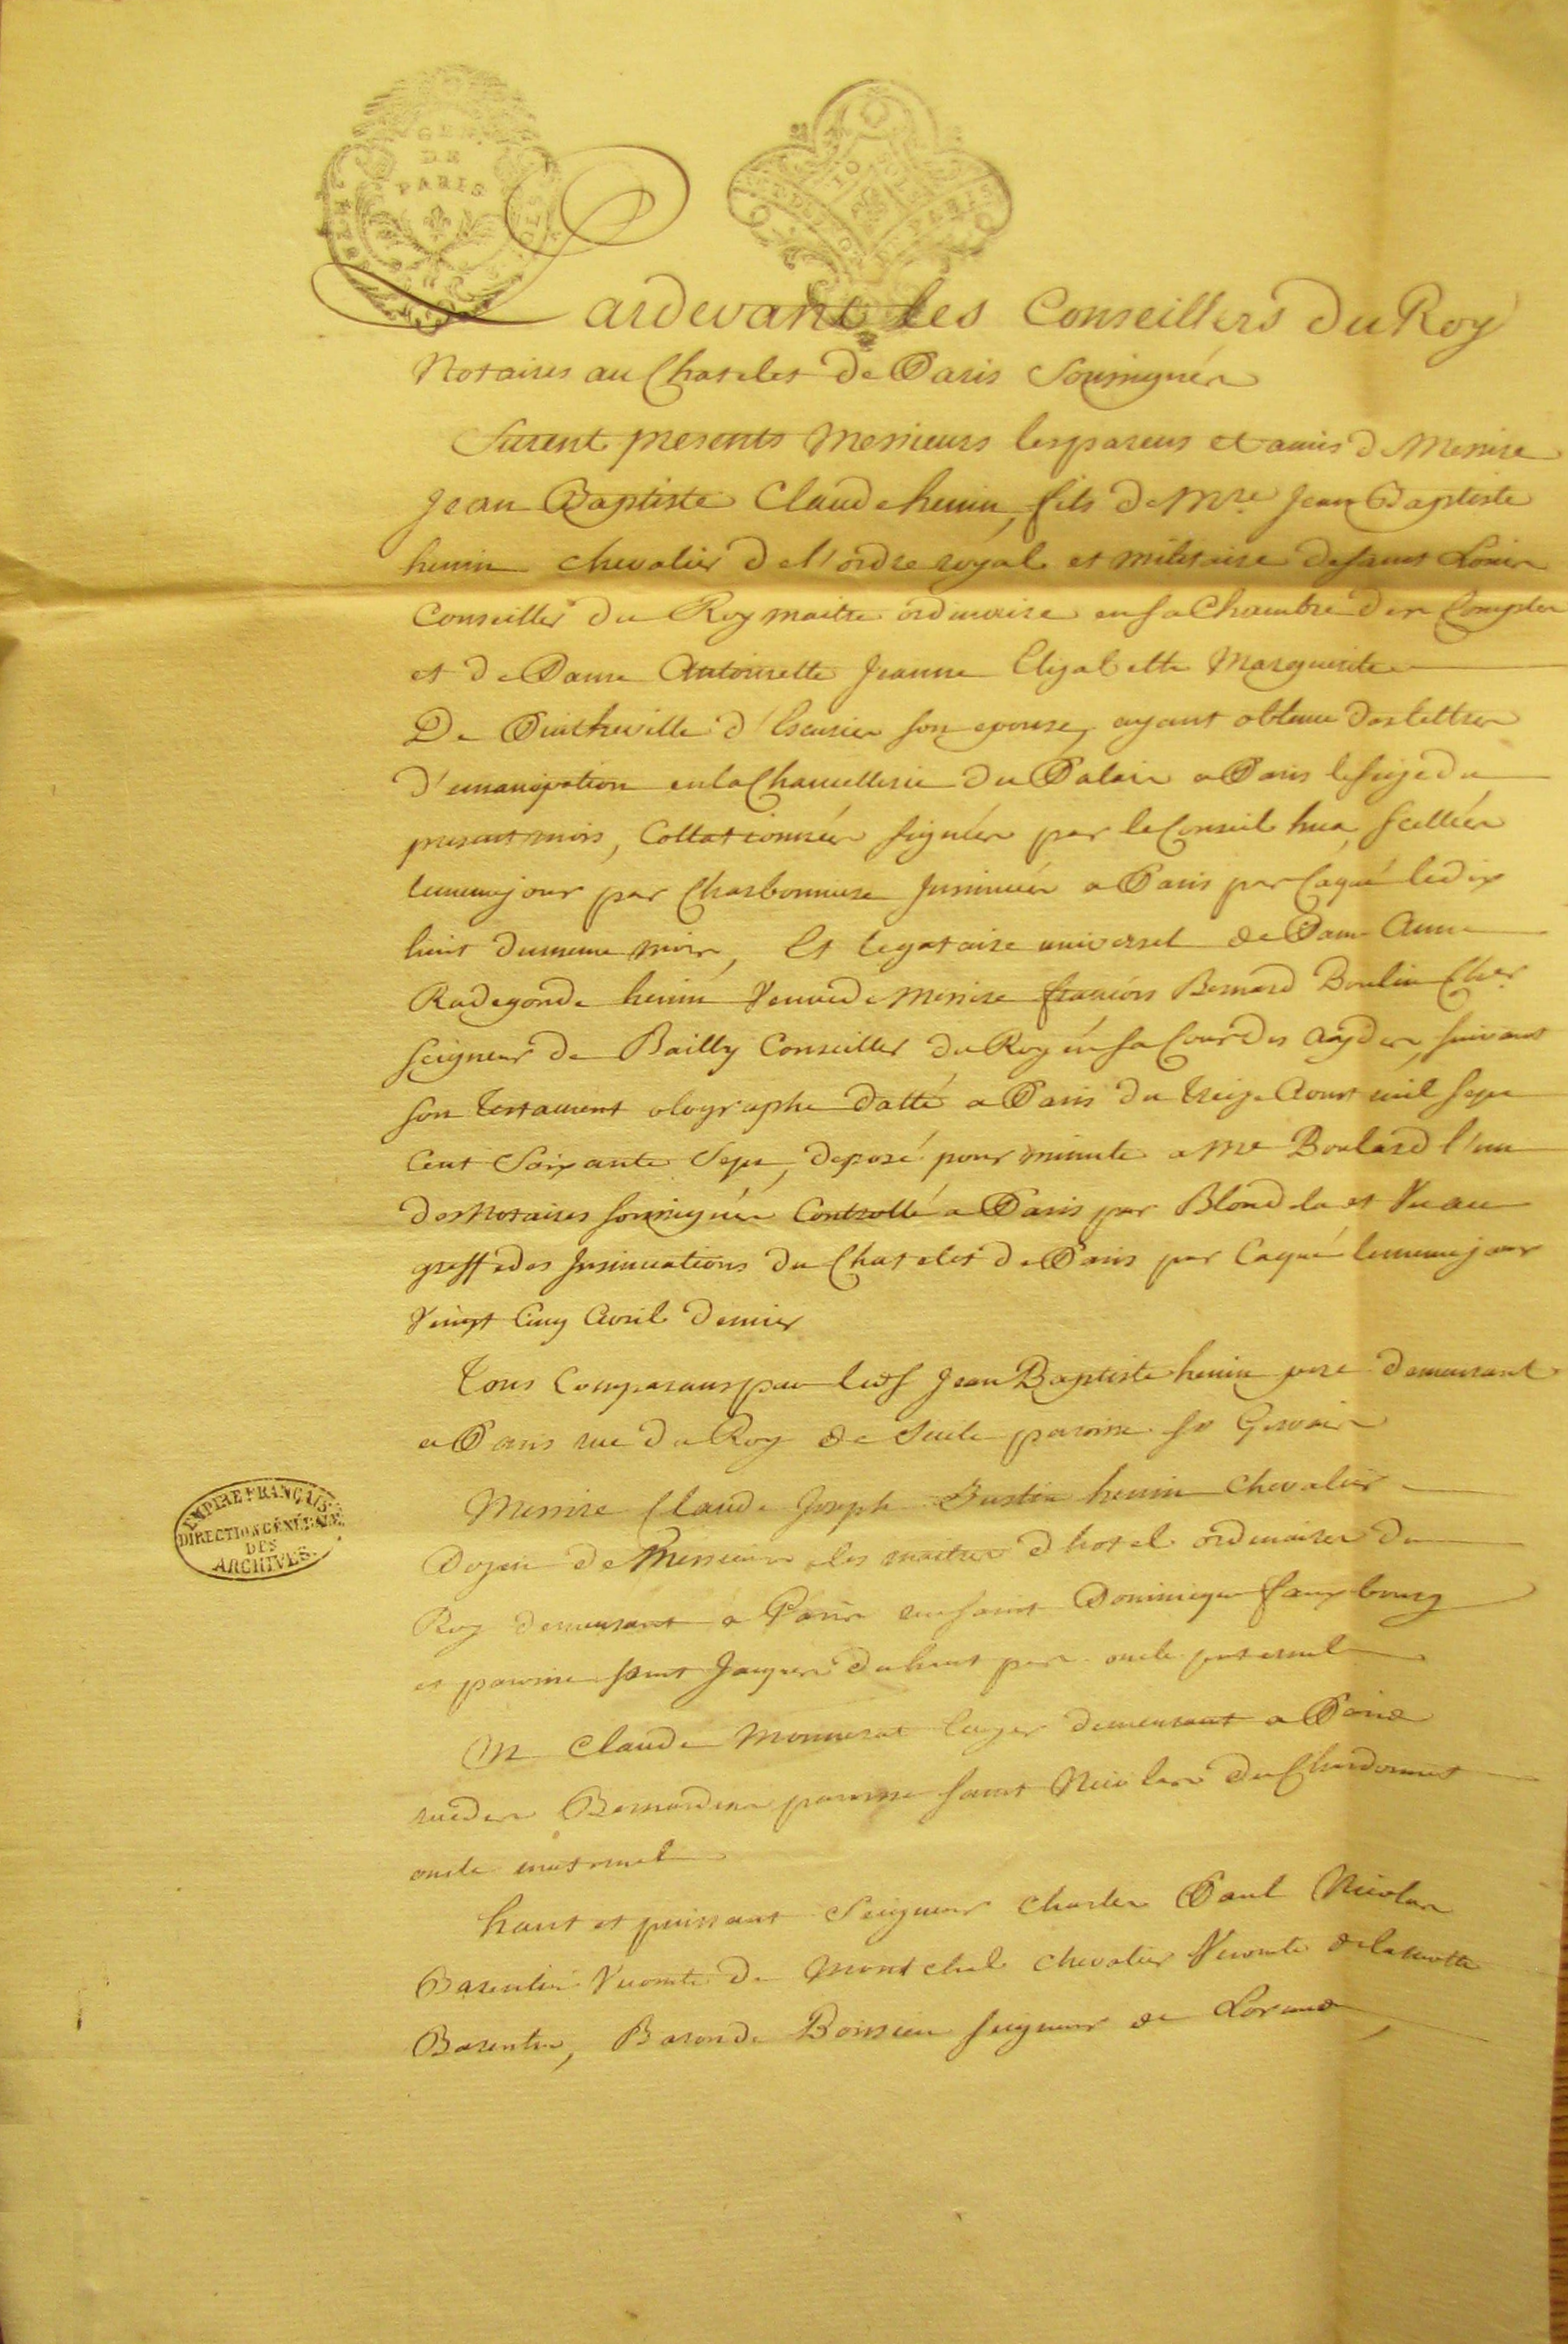 GEN
DE
PARIS
Pardevant les Conseillers du Roy
Notaires au Chatelet de Paris Soussignés
Furent presents Messieurs les parens et amis de Messire
Jean Baptiste Claude henin, fils de Mre. Jean Baptiste
henin chevalier de l'ordre royal et militaire de saint Louis
Conseiller du Roy maitre ordinaire en sa Chambre des Comptes
et de Dame Antoinette Jeanne Elizabette Marguerite
De d'Escurier son epouse, ayant obtenu des lettres
d'emancipation en la Chancellerie du Palais a Paris le seize du
present mois, Collationnées signées par le Conseil hua, Scellées
le meme jour par Charbonniere Insinuées a Paris par Caqué le dix
huit du meme mois, Et legataire universel de Dame Anne
Radegonde henin Veuve de Messire françois Bernard Boulin Cher.
Seigneur de Bailly Conseiller du Roy en sa Cour des Aydes, suivant
son testament olographe datté a Paris du treize Aoust mil sept
Cent Soixante Sept, deposé pour minute a Me Boulard l'un
des Notaires soussignés Controllé a Paris par Blondela et Vu au
greffe des Insinuations du Chatelet de Paris par Caqué le meme jour
Vingt Cinq Avril dernier
Tous Comparans par led. S Jean Baptiste henin pere demeurant
a Paris rue du Roy de Sicile paroisse St Gervais
Messire Claude Joseph henin Chevalier
Doyen de Messieurs les maitres d'hotel ordinaires du
Roy demeurant a Paris rue saint Dominique fauxbourg
et paroisse saint Jacques du haut pas oncle paternel
M Claude Monnerat demeurant a Paris
rue des Bernardins paroisse saint Nicolas du Chardonnet
oncle maternel
haut et puissant Seigneur Charles Paul Nicolas
Barentin Vicomte de Montchal chevalier Vicomte de la motte
Barentin, Baron de Seigneur de
EMPIRE FRANÇAIS
DIRECTION GÉNÉRALE
DES
ARCHIVES.